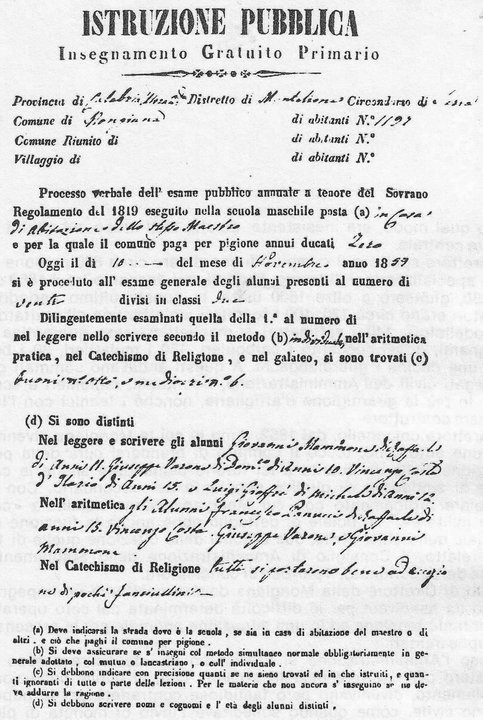 ISTRUZIONE PUBBLICA
Insegnamento Gratuito Primario
Provincia di Calabria Distretto di Monteleone Circondario di
Comune di di abitanti N.° 1192
Comune Riunito di di abitanti N.°
Villaggio di di abitanti N.°
Processo verbale dell' esame pubblico annuale a tenore del Sovrano
Regolamento del 1819 eseguito nella scuola maschile posta (a) in Casa
di Abitazione dello stesso Maestro
e per la quale il comune paga per pigione annui ducati Zero
Oggi il dì 10 del mese di Novembre anno 1859
si è proceduto all' esame generale degli alunni presenti al numero di
venti divisi in classi due
Dilingentemente esaminati quella della 1.ª al numero di
nel leggere nello scrivere secondo il metodo (b) individuale nell'aritmetica
pratica, nel Catechismo di Religione, e nel galateo, si sono trovati (c)
buoni n. otto, e mediocri n. 6.
(d) Si sono distinti
Nel leggere e scrivere gli alunni Giovanni Mammone di Raffaele
di Anni 11. Giuseppe Varone di Dom.co di Anni 10. Vincenzo Costa
d'Ilario di Anni 15. e Luigi Gioffrè di Michele di Anni 12
Nell' aritmetica gli Alunni Francesco di Raffaele di
anni 13. Vincenzo Costa. Giuseppe Varone, e Giovanni
Mammone
Nel Catechismo di Religione tutti si portarono bene ad eccezio
ne di pochi fanciullini
(a) Deve indicarsi la strada dove è la scuola, se sia in caso di abitazione del maestro o di
altri. e ciò che paghi il comune per pigione.
(b) Si deve assicurare se s' insegni col metodo simultaneo normale obbligatoriamente in ge-
nerale adottato, col mutuo o lancastriano, o coll' individuale.
(c) Si debbono indicare con precisione quanti se ne sieno trovati ed in che istruiti, e quan-
ti ignoranti di tutto o parte delle lezioni. Per le materie che non ancora s' insegnano se ne de-
va addurre la ragione.
(d) Si debbono scrivere nomi e cognomi e l' età degli alunni distinti.